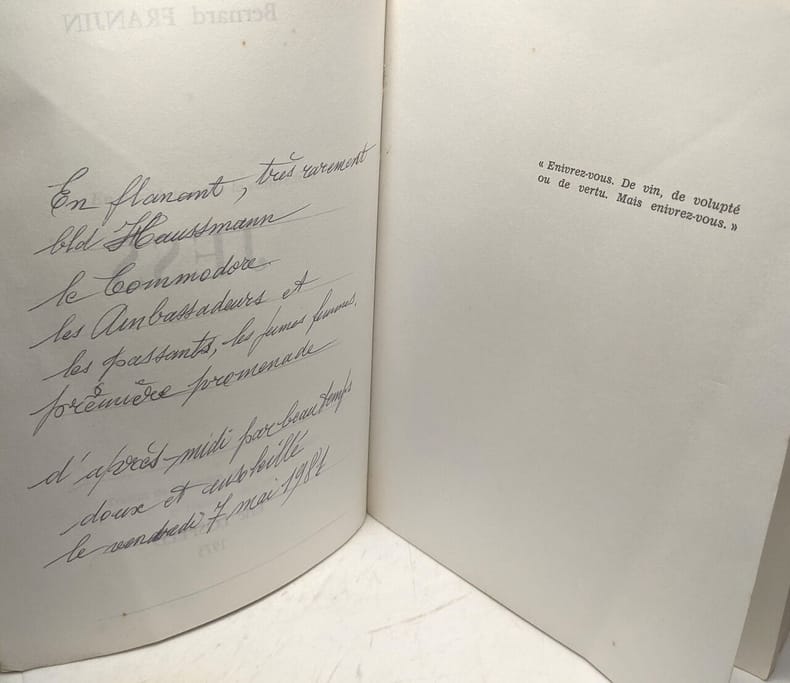 Bernard FRANJIN
En flanant, très rarement
bld Haussmann
le Commodore.
les Ambassadeurs et
les passants, les jeunes femmes,
première promenade
d'après-midi par beau temps
doux et ensoleillé
le vendredi 7 mai 1981
« Enivrez-vous. De vin, de volupté
ou de vertu. Mais enivrez-vous. »